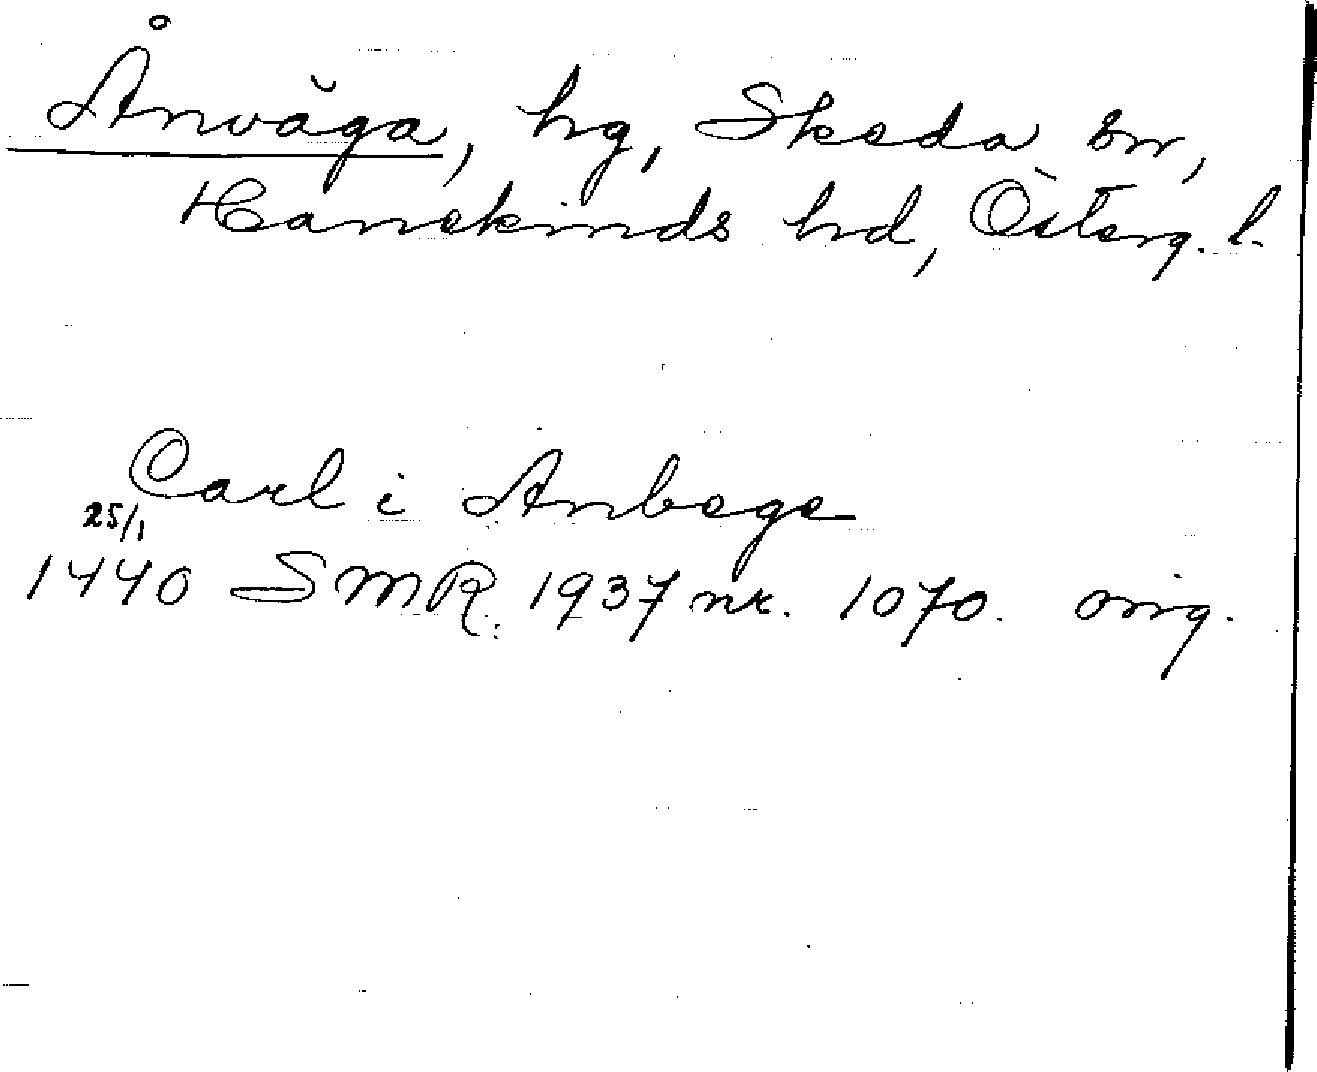 Ånväga, hg, Skeda sn,
Hanekinds hd, Österg. l.
Carl i Anbege
25/1
1440 SMR. 1937 nr. 1070. orig.